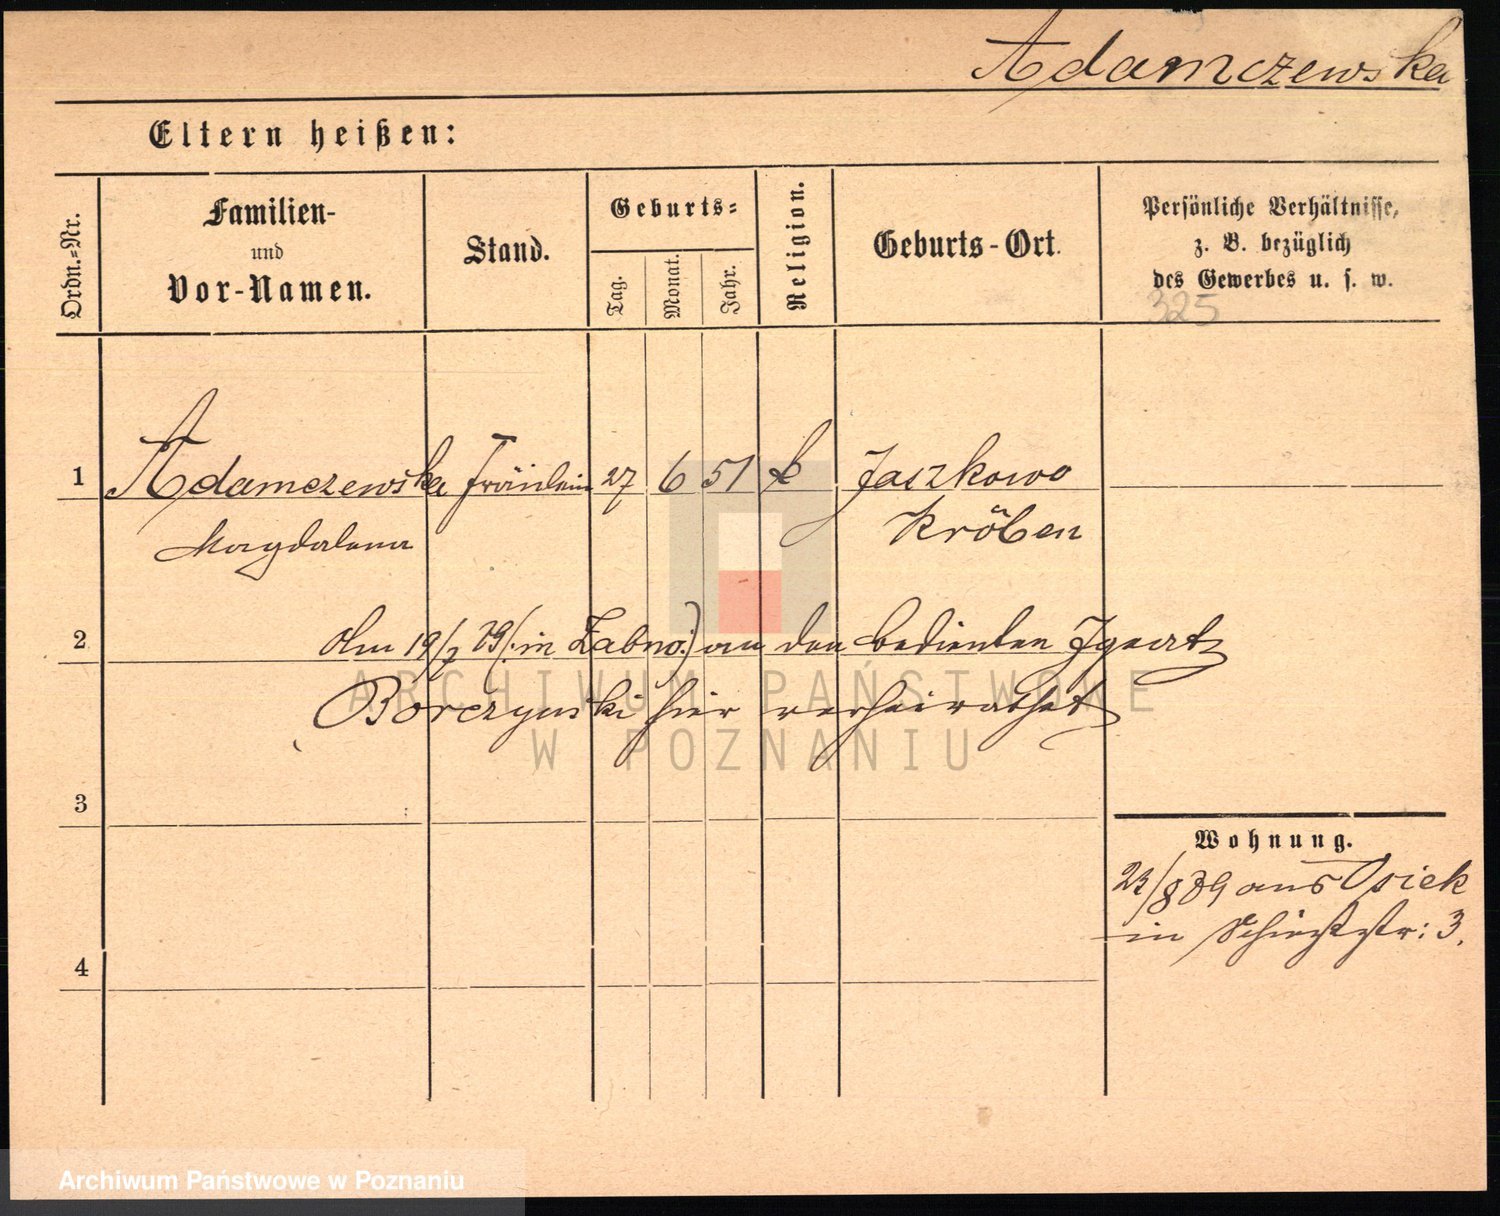 Adamczewska
Eltern heißen:
Ordn.-Nr.
Familien-
und
Vor-Namen.
Stand.
Geburts-
Tag.
Monat.
Jahr.
Religion.
Geburts-Ort.
Persönliche Verhältnisse,
z. B. bezüglich
des Gewerbes u. s. w.
325
1 Adamczewska Fräulein 27 6 51 k Jaszkowo
Magdalena Kröben
2 Am 19/7 89 (: in Zabno :) an den bedienten Ignatz
Borczynski hier verheirathet
3
Wohnung.
23/8 89 aus Osiek
in Schießstr: 3.
4
ARCHIWUM PAŃSTWOWE
W POZNANIU
Archiwum Państwowe w Poznaniu